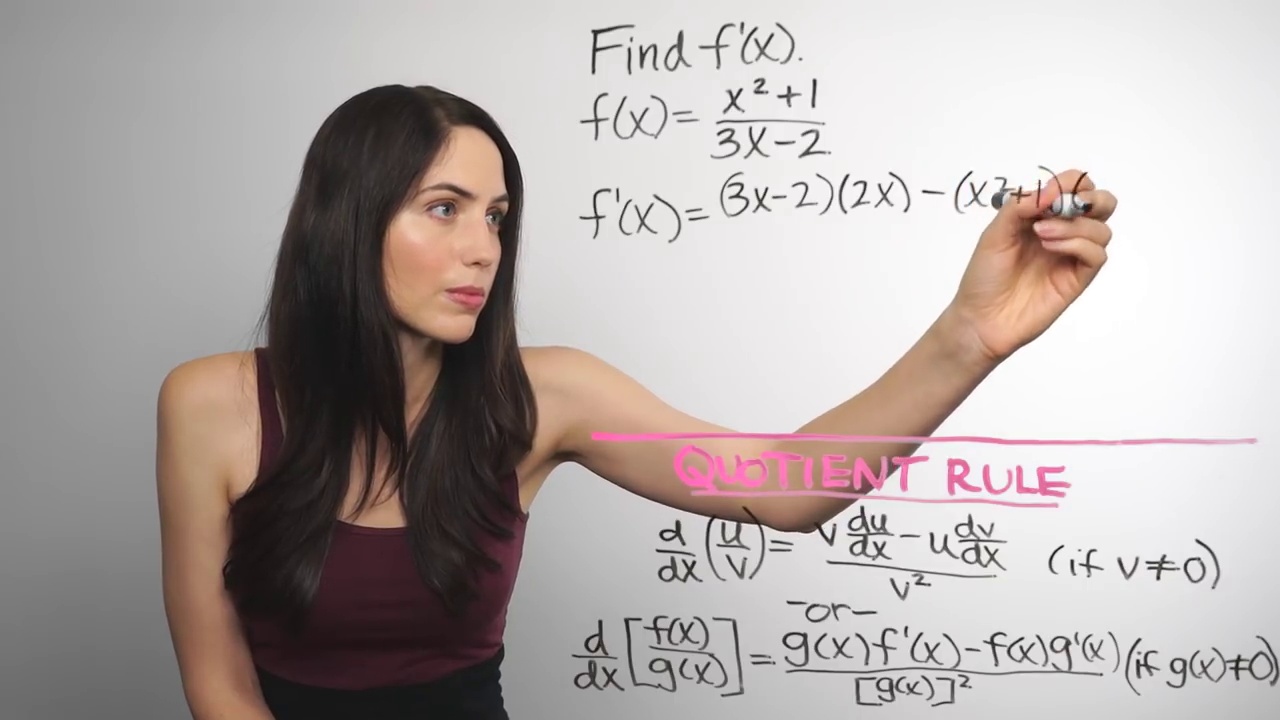 Find f'(x).
f(x) = \frac{x²+1}{3x-2}
f'(x) = (3x-2)(2x) - (x²+1)(
QUOTIENT RULE
\frac{d}{dx}(\frac{u}{v}) = \frac{v \frac{du}{dx} - u \frac{dv}{dx}}{v²} (if v≠0)
-or-
\frac{d}{dx}[\frac{f(x)}{g(x)}] = \frac{g(x)f'(x) - f(x)g'(x)}{[g(x)]²} (if g(x)≠0)